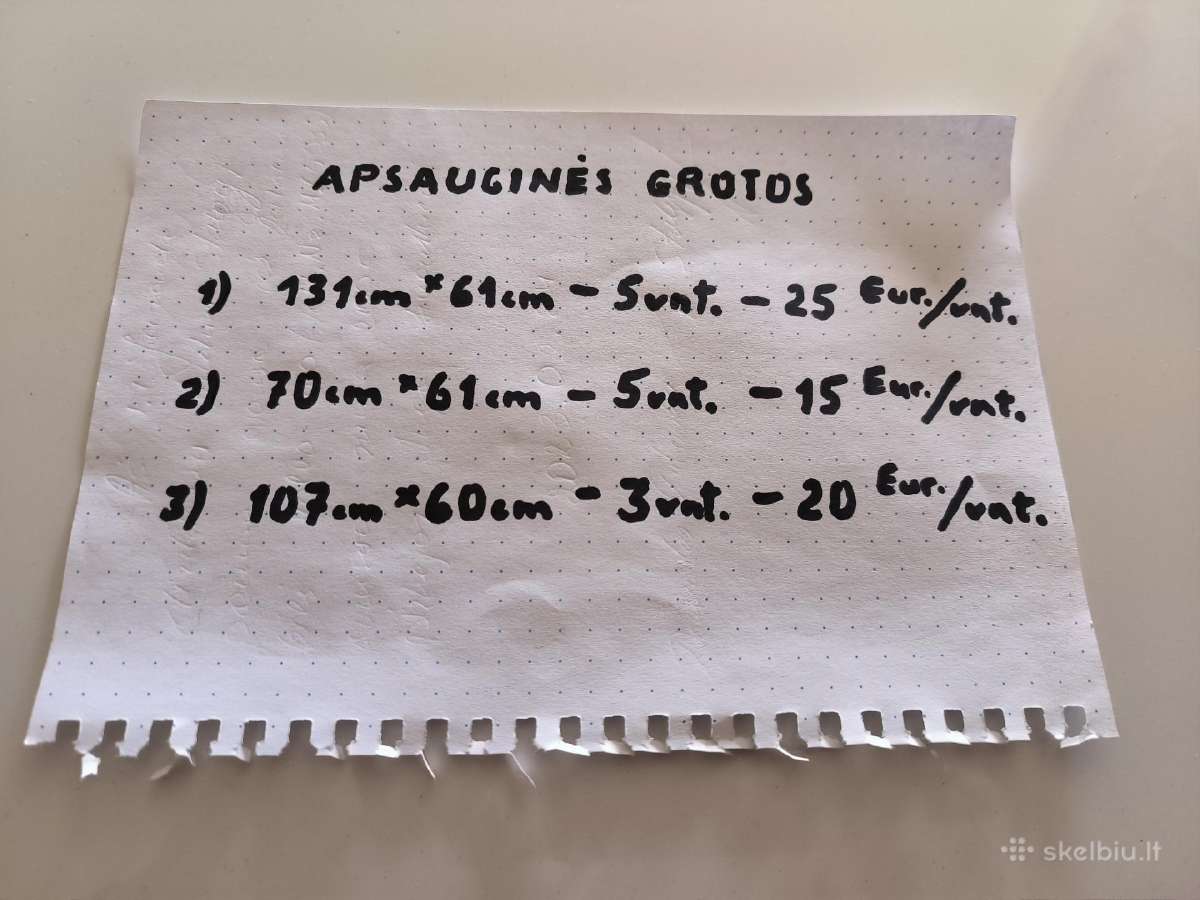 APSAUGINĖS GROTOS
1) 131cm * 61cm - 5vnt. - 25 Eur./vnt.
2) 70cm * 61cm - 5vnt. - 15 Eur./vnt.
3) 107cm * 60cm - 3vnt. - 20 Eur./vnt.
skelbiu.lt